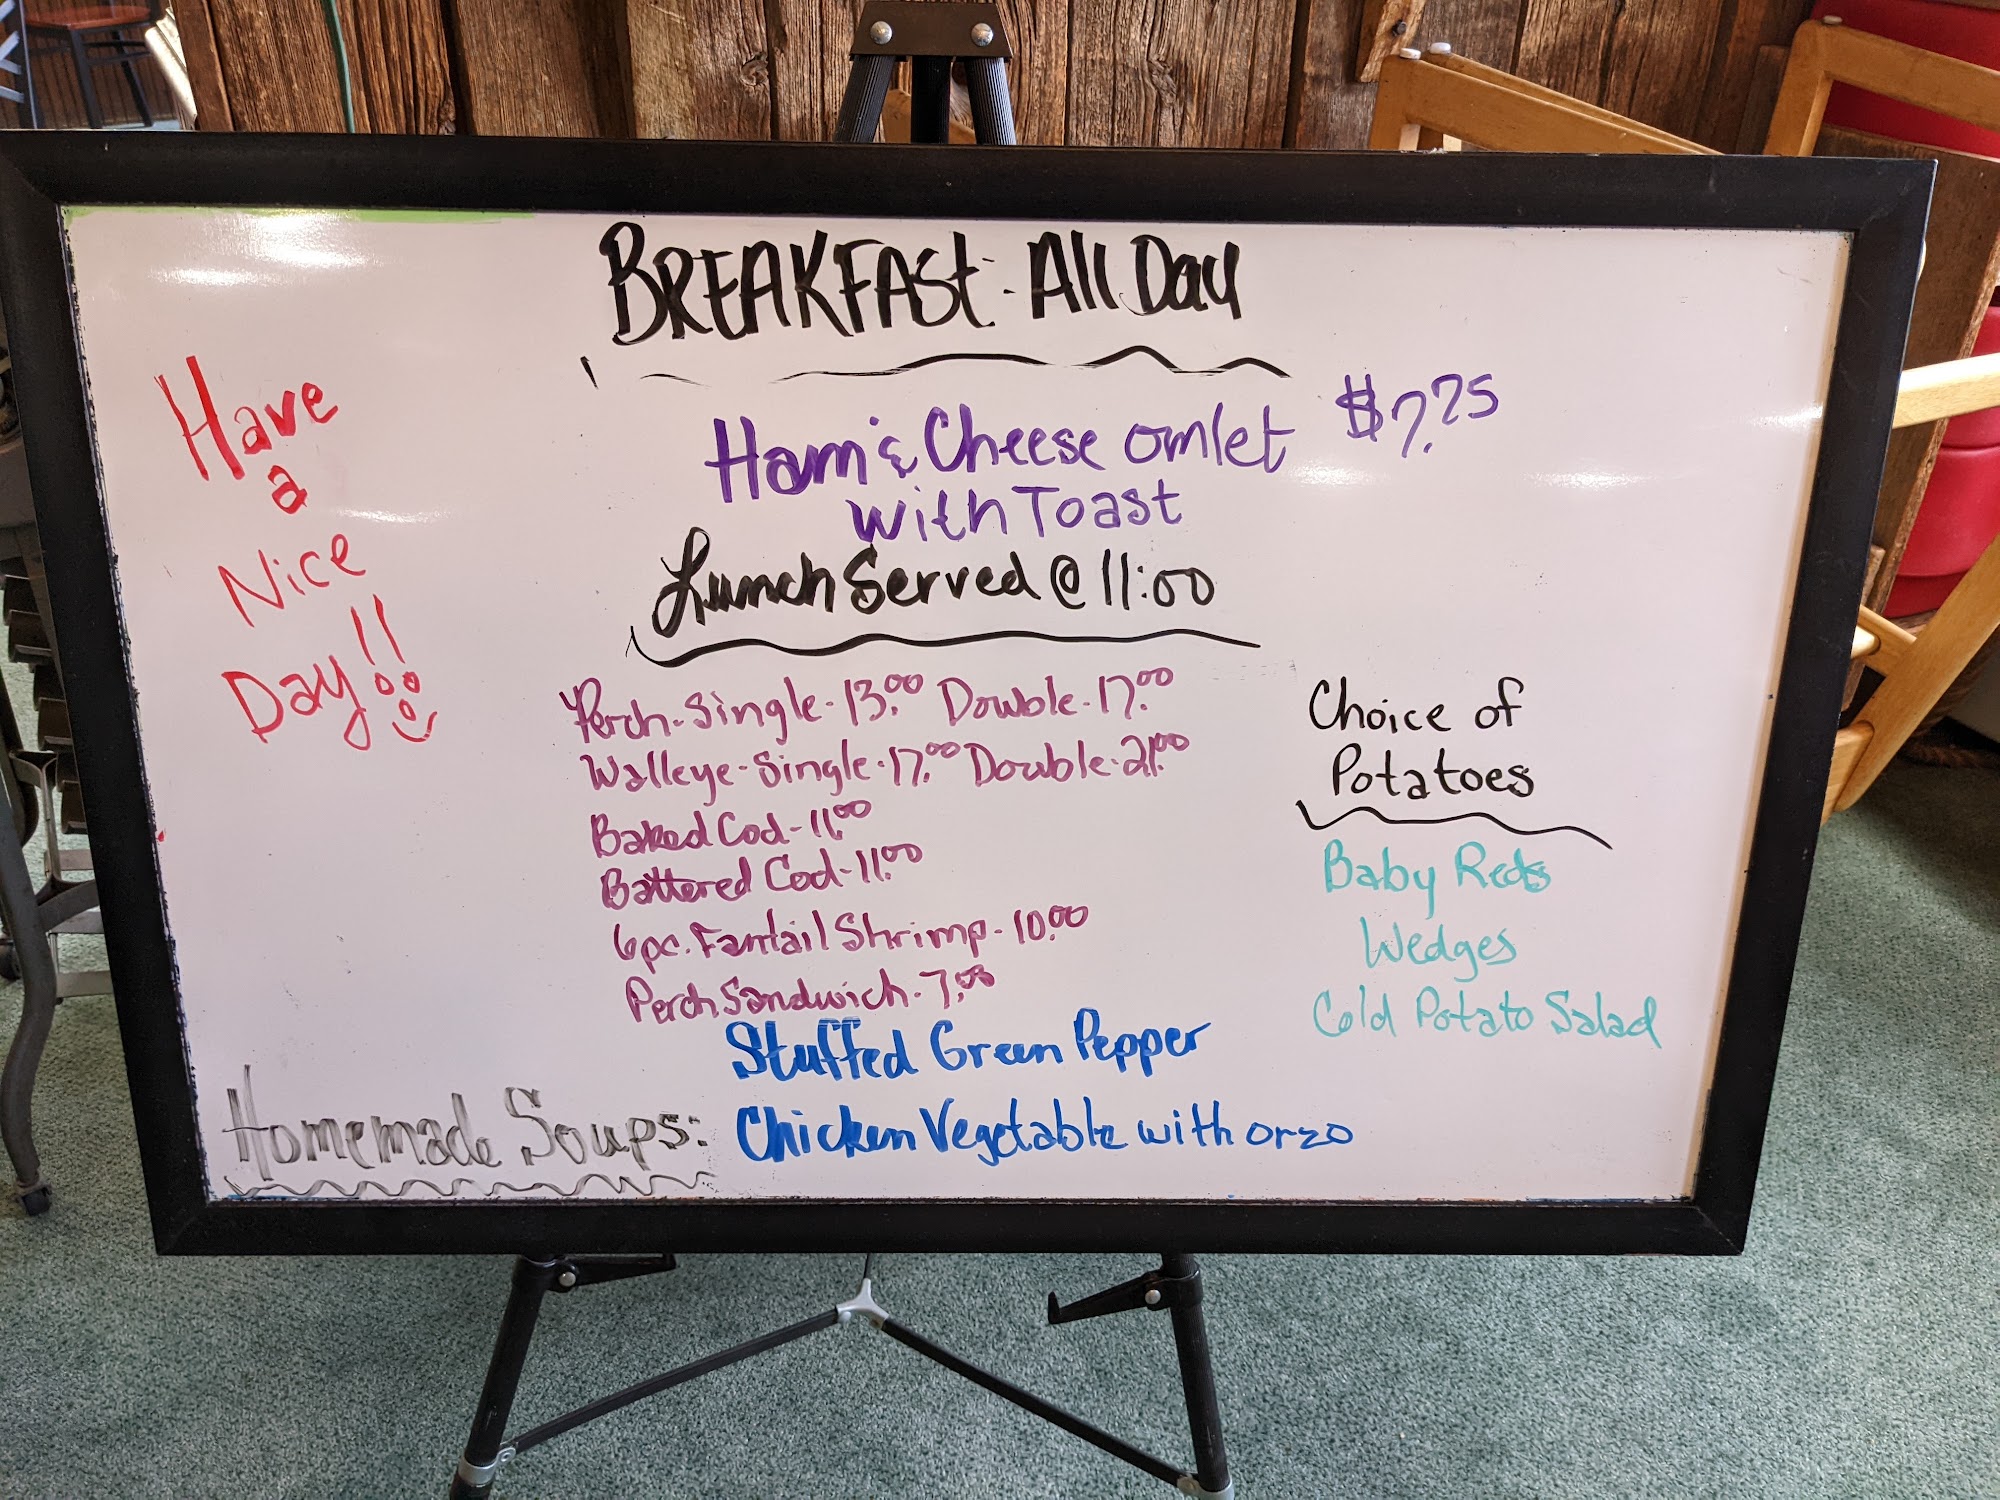 BREAKFAST: All Day
Have
a
Nice
Day!!
Ham & Cheese omlet $7.75
with Toast
Lunch Served @ 11:00
Perch-Single-13.00 Double-17.00
Walleye-Single-17.00 Double-21.00
Baked Cod-11.00
Battered Cod-11.00
6pc. Fantail Shrimp-10.00
Perch Sandwich-7.00
Choice of
Potatoes
Baby Reds
Wedges
Cold Potato Salad
Homemade Soups:
Stuffed Green Pepper
Chicken Vegetable with orzo